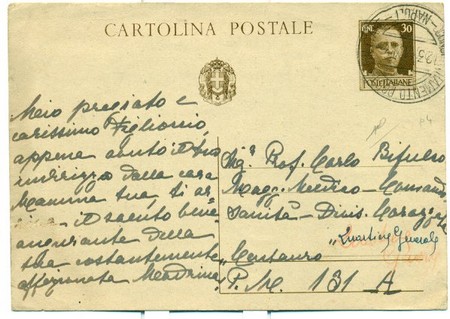 CARTOLINA POSTALE
CENT. 30
POSTE ITALIANE
NAPOLI
Mio pregiato e
carissimo Figlioccio,
appena avuto il tuo
indirizzo dalla cara
Mamma tua, ti ar-
il saluto bene
augurante della
tua costantemente
affezionata Madrina
Sig. Prof. Carlo Bifulco
Magg. Medico - Comando
Sanità - Divis. Corazzata
Centauro
P. M. 131 A